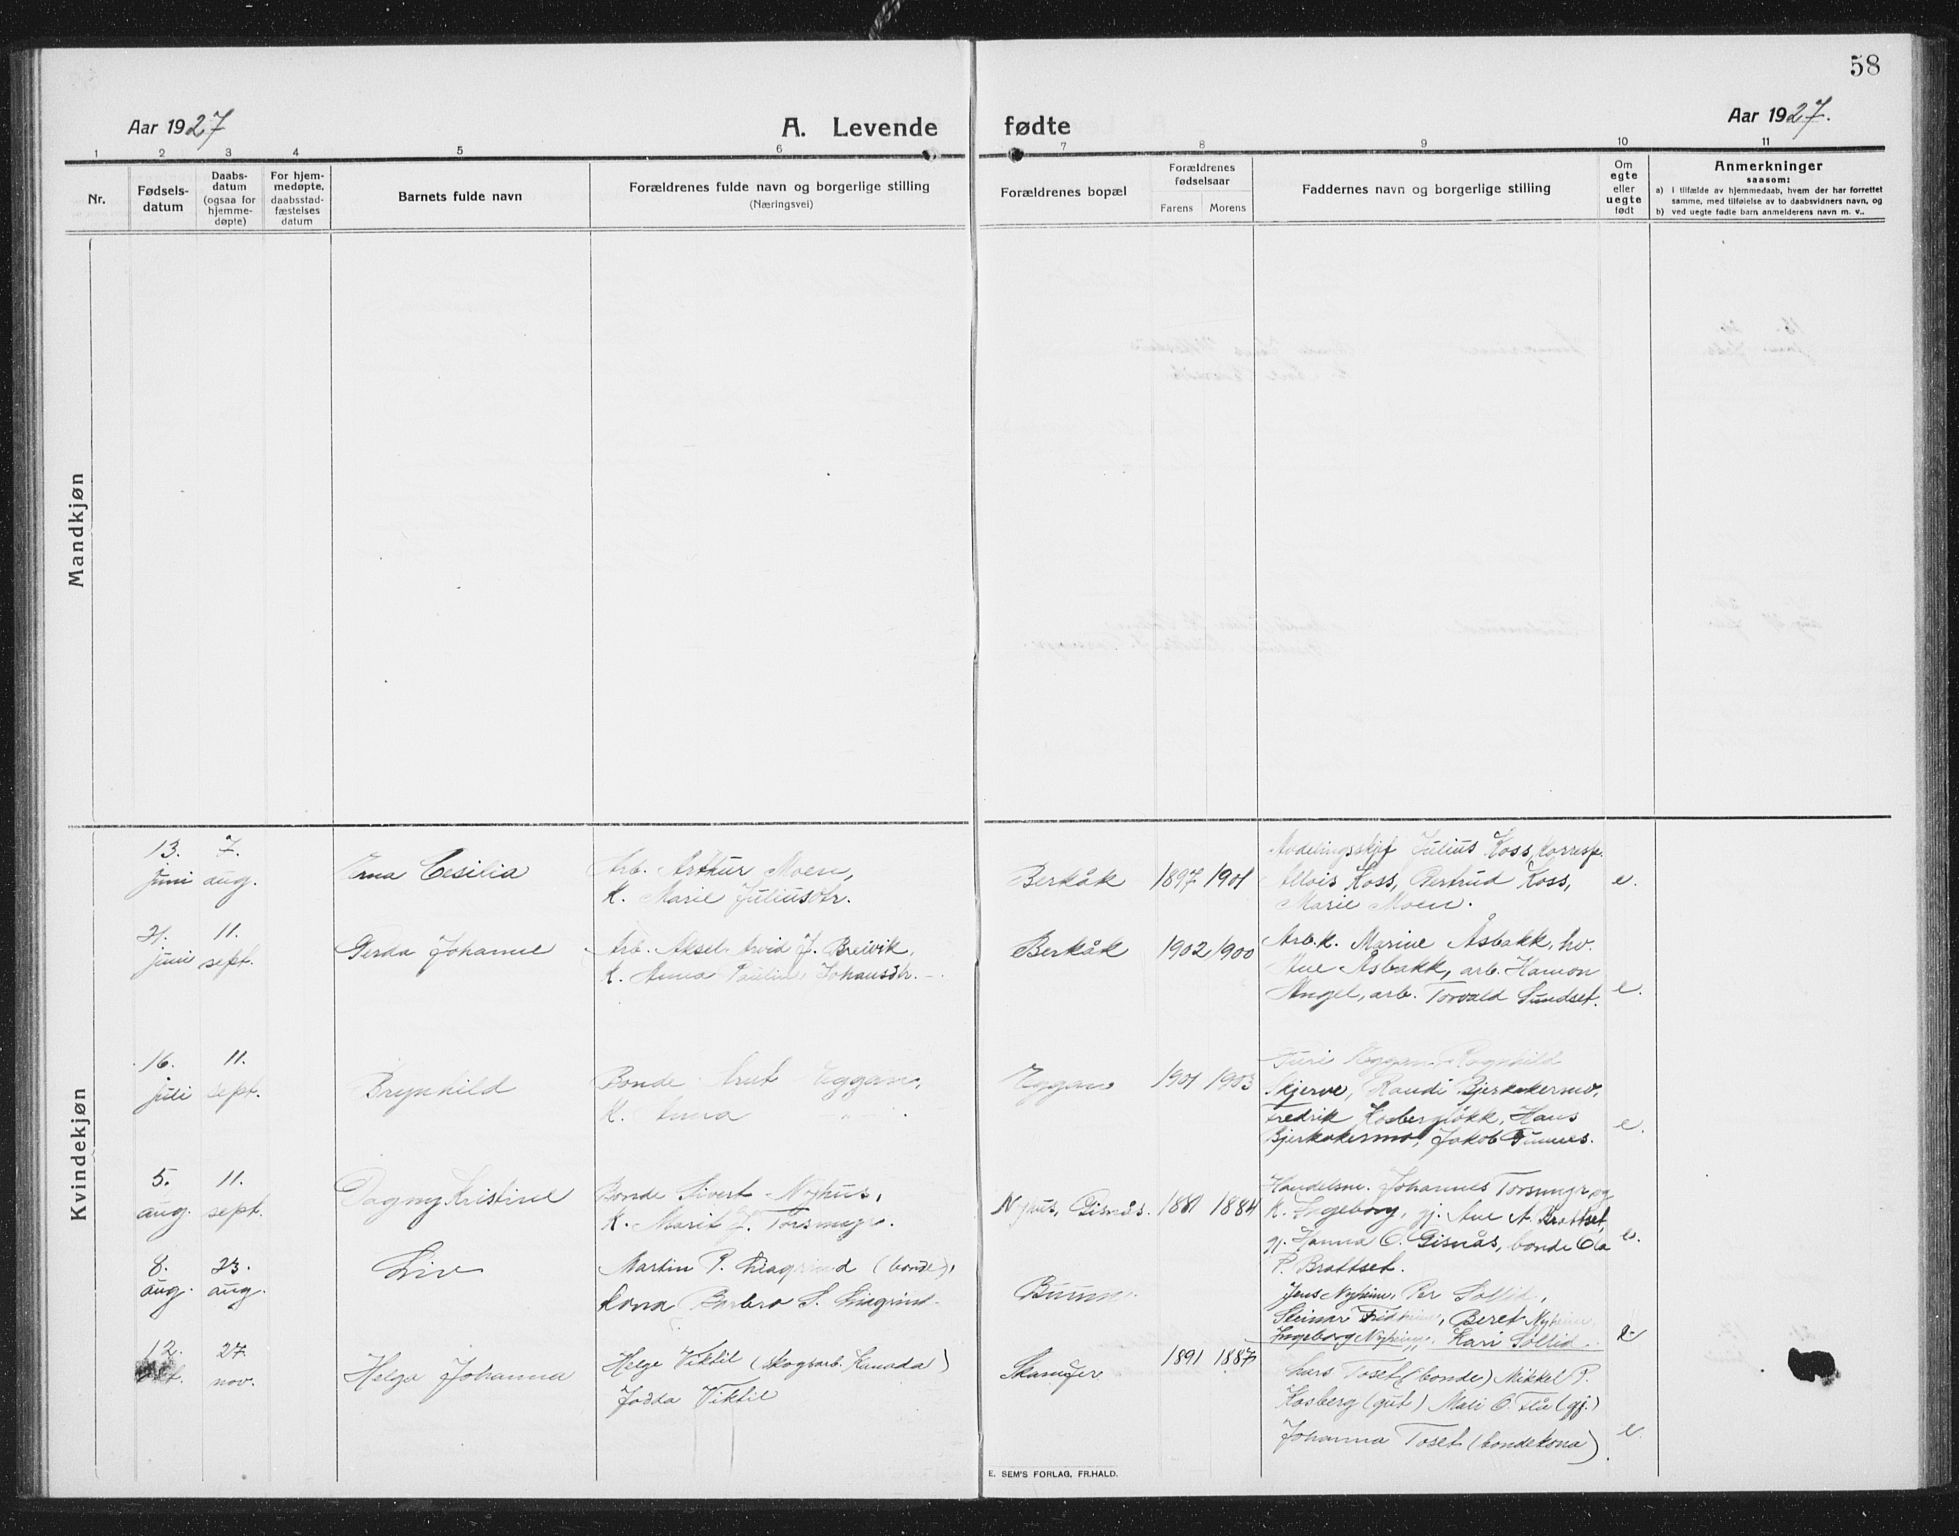 58
Aar 1927
A. Levende fødte
Aar 1927.
1 2 3 4 5 6 7 8 9 10 11
Nr.
Fødsels-
datum
Daabs-
datum
(ogsaa for
hjemme-
døpte)
For hjem-
medøpte,
daabsstad-
fæstelses
datum
Barnets fulde navn
Forældrenes fulde navn og borgerlige stilling
(Næringsvei)
Forældrenes bopæl
Forældrenes
fødselsaar
Farens Morens
Faddernes navn og borgerlige stilling
Om
egte
eller
uegte
født
Anmerkninger
saasom:
a) I tilfælde av hjemmedaab, hvem der har forrettet
samme, med tilføielse av to daabsvidners navn, og
b) ved uegte fødte barn anmelderens navn m. v..
Mandkjøn
Kvindekjøn
13. juni
7. aug.
Cesilia
Arb. Arthur Moen,
K. Marie Juliusdtr.
Berkåk
1897 1901
Avdelingsskjef Julius Koss, Korresp.
Alois Koss, Bertrud Koss,
Marie Moen.
e.
21. juni
11. sept.
Gerda Johanne
Arb. Aksel Arvid J. Breivik,
K. Anna Pauline Johansdtr.
Berkåk
1902 1900
Arb.k. Marine Åsbakk, hv.
Ane Åsbakk, arb. Hamon
Angel, arb. Torvald Sundset.
e.
16. juli
11. sept.
Brynhild
Bonde Arnt Eggan,
K. Anna
Eggan
1901 1903
Turi Eggan, Ragnhild
Skjerve, Randi Bjerkakermo,
Fredrik Kosbergløkk, Hans
Bjerkakermo, Jakob
e.
5. aug.
11. sept.
Dagmy Kristine
Bonde Sivert Nyhus,
K. Marit
Nyhus, Gisnås.
1881 1884
Handelsm. Johannes og
K. Ingeborg, gj. Ane A. Brattset,
gj. Hanna O. Gisnås, bonde Ola
P. Brattset.
e.
8. aug.
23. aug.
Liv
Martin P. (bonde),
kona Barbro S.
Jens Nyheim, Per Sollid,
Steinar Beret Nyheim
Ingeborg Nyheim, Kari Sollid.
e
12.
27. nov.
Helga Johanna
Helge Viktil (Skogsarb. Kanada)
Jodda Viktil
1891 1887
Lars Toset (bonde) Mikkel P.
Kosberg (gut) Mari O. Flå (gj.)
Johanna Toset (bondekona)
e.
E. SEM'S FORLAG, FR.HALD.